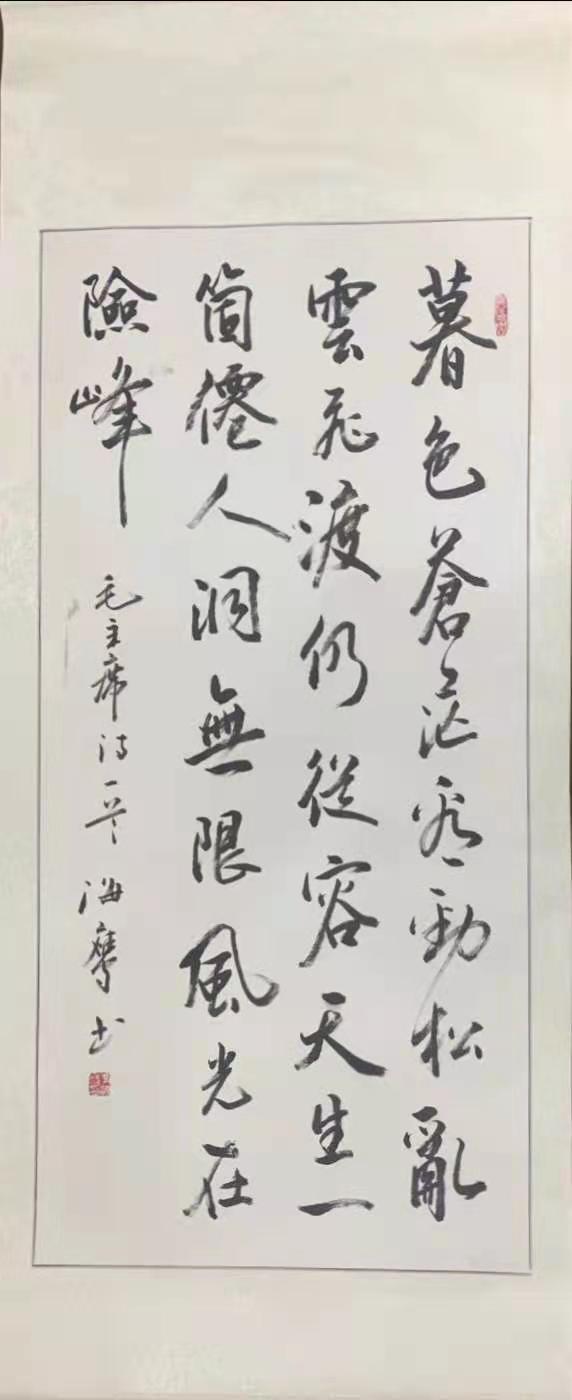 暮色蒼茫看勁松亂
雲飛渡仍從容天生一
箇僊人洞無限風光在
險峰
毛主席诗一首 海鹰书